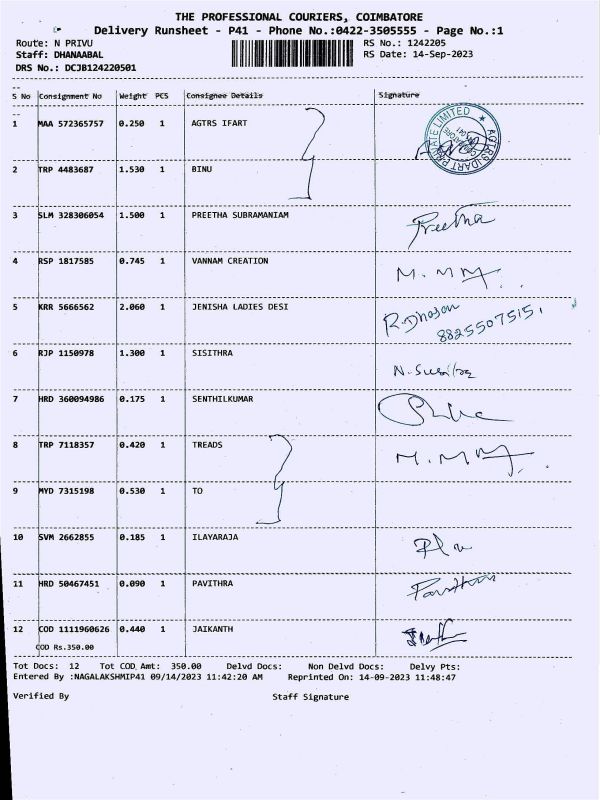 THE PROFESSIONAL COURIERS, COIMBATORE
Delivery Runsheet - P41 - Phone No.:0422-3505555 - Page No.:1
Route: N PRIVU RS No.: 1242205
Staff: DHANAABAL RS Date: 14-Sep-2023
DRS No.: DCJB124220501
S No Consignment No Weight PCS Consignee Details Signature
1 MAA 572365757 0.250 1 AGTRS IFART
PRIVATE LIMITED
2 TRP 4483687 1.530 1 BINU
3 SLM 328306054 1.500 1 PREETHA SUBRAMANIAM Preetha
4 RSP 1817585 0.745 1 VANNAM CREATION M.MM
5 KRR 5666562 2.060 1 JENISHA LADIES DESI R.Dhosan
8825507515
6 RJP 1150978 1.300 1 SISITHRA
7 HRD 360094986 0.175 1 SENTHILKUMAR
8 TRP 7118357 0.420 1 TREADS M.MM
9 MYD 7315198 0.530 1 TO
10 SVM 2662855 0.185 1 ILAYARAJA
11 HRD 50467451 0.090 1 PAVITHRA
12 COD 1111960626 0.440 1 JAIKANTH
COD Rs.350.00
Tot Docs: 12 Tot COD Amt: 350.00 Delvd Docs: Non Delvd Docs: Delvy Pts:
Entered By :NAGALAKSHMIP41 09/14/2023 11:42:20 AM Reprinted On: 14-09-2023 11:48:47
Verified By Staff Signature